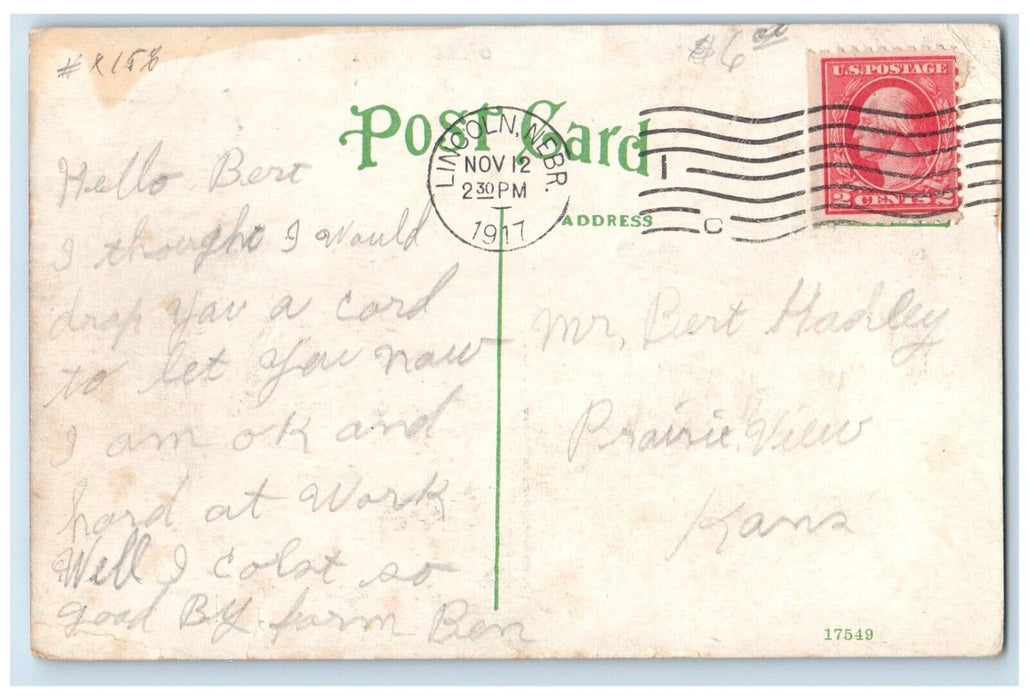 # R158
$6 00
U.S. POSTAGE
2 CENTS 2
Post Card
LINCOLN, NEBR.
NOV 12
2 30 PM
1917
1
C
ADDRESS
Hello Bert
I thought I Would
drop You a Card
to let You now
I am ok and
hard at Work
Well I so
good By farm Ben
Mr, Bert Hadley
Prairie View
Kans
17549